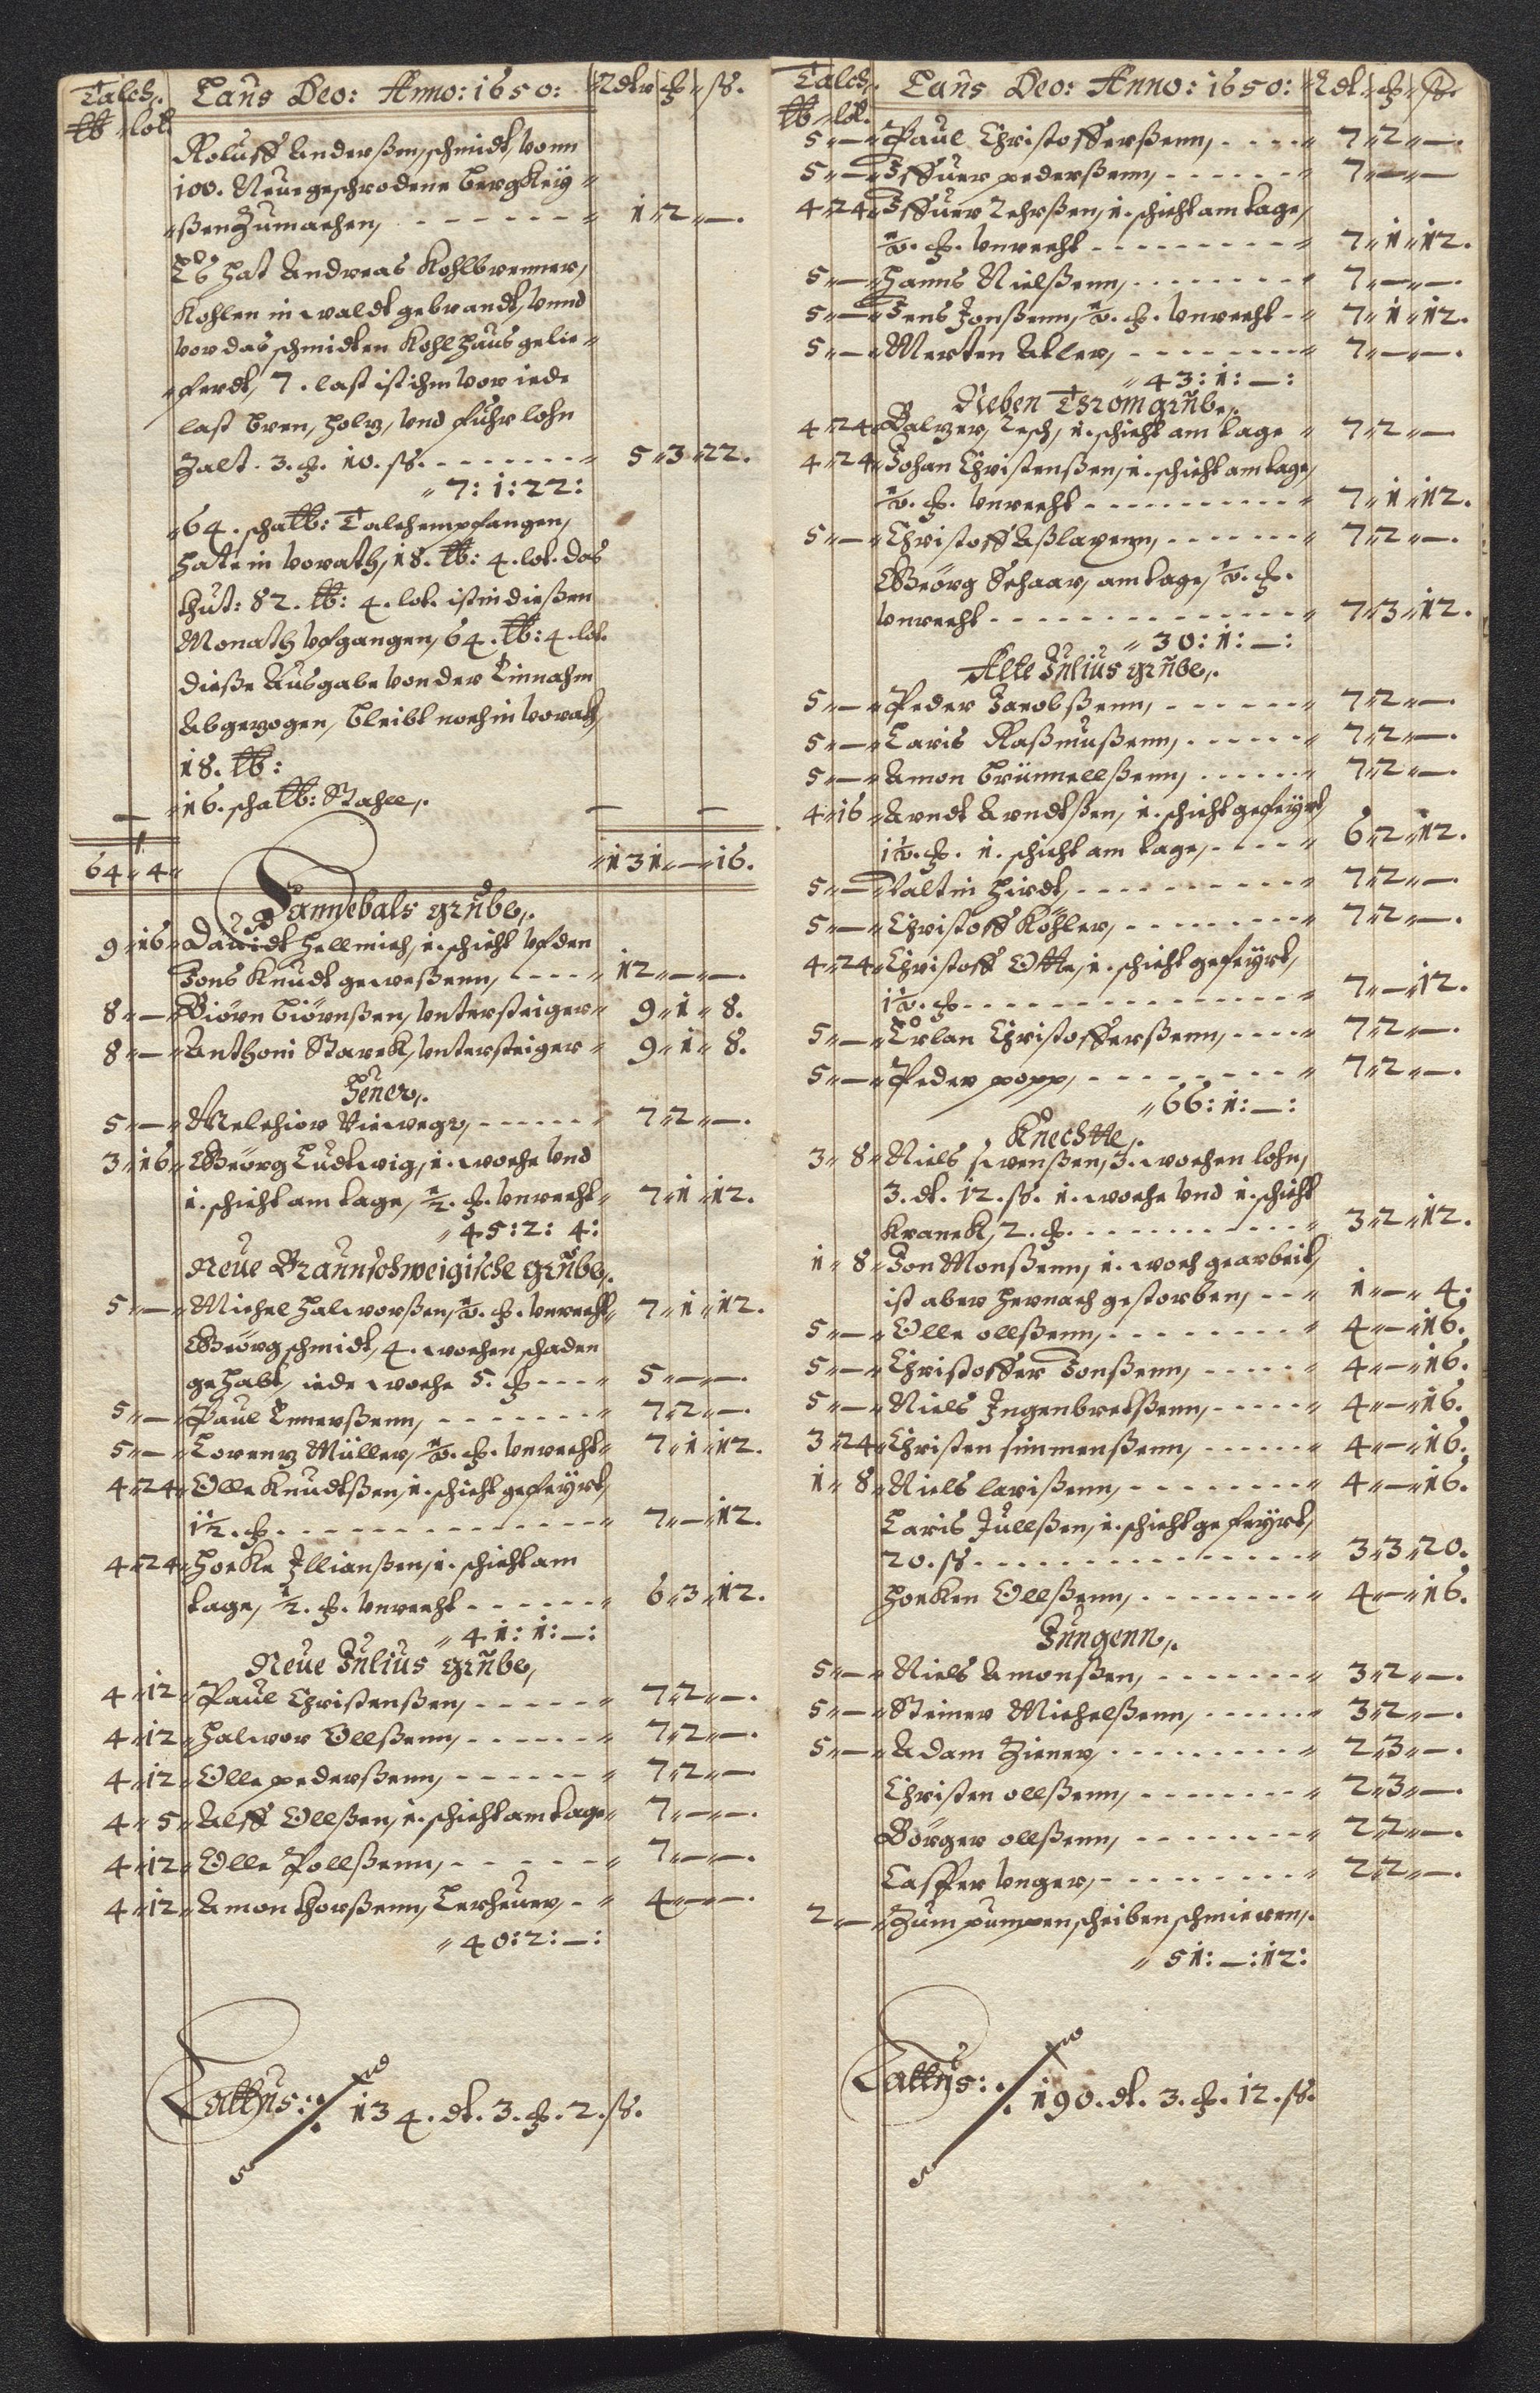 Talch. Laus Deo: Anno: 1650: Rdtr ß.
℔ lot.
Roluff Anderßen, schmidt, vonn
100. Neue geschrodene bergkeÿ
ßen Zumachen, 1 2 —.
Es hat Andreas Kohlbrenner,
Kohlen in waldt gebrandt, vnnd
vor das schmidten Kohlhaus gelie
ferdt, 7. last ist ihm vor iede
last bren, holtz, vnd fuhrlohn
Zalt. 3. 10. ß. 5 3 22.
7: 1: 22:
64. scha℔: Talch empfangen,
hate in vorath, 18. ℔: 4. lot. das
thut: 82. ℔: 4. lot. ist in dießen
Monath vfgangen, 64. ℔: 4. lot.
dieße Ausgabe von der Einnahm
Abgezogen, bleibt noch in vorath,
18. ℔:
— 16. scha℔: Stahll. — —
64 4 131 — 16.
Sannebals grube.
9 16 Dauidt Hellmich, 1. schicht vf den
Jons Knudt geweßenn, 12 — —.
8 — Biörn Biörnßen, Untersteiger 9 1 8.
8 — Anthoni Starck, Untersteiger 9 1 8.
Heuer.
5 — Melchior Vieweger, 7 2 —.
3 16 Geörg Ludtwig, 1. woche vnd
1. schicht am tage, ½. vnrecht 7 1 12.
45: 2: 4:
Neue Braunschweigische grube.
5 — Michel Halworßen, ½. vnrecht 7 1 12.
Geörg schmidt, 4. wochen schaden
gehabt, iede woche 5. 5 — —.
5 — Paul Ennerßenn, 7 2 —.
5 — Lorentz Müller, ½. vnrecht 7 1 12.
4 24 Olle Knudtßen, 1. schicht gefeÿrt,
1½. 7 — 12.
4 24 Hocke Jllianßen, 1. schicht am
tage, ½. vnrecht 6 3 12.
41: 1: —:
Neue Julius grube,
4 12 Paul Christenßen, 7 2 —.
4 12 Halwor Ollßenn, 7 2 —.
4 12 Olle pederßenn, 7 2 —.
4 5 Alff Ollßen, 1. schicht am tage 7 — —.
4 12 Olle Pollßenn, 7 — —.
4 12 Amon thorßenn, Lerheuer, 4 — —.
40: 2: —:
Lattus: 134. dt. 3. 2. ß.
Talch. Laus Deo: Anno: 1650: Rdt ß.
℔ lot.
5 — Paul Christofferßenn, 7 2 —.
5 — Iffuer pederßenn, 7 — —
4 24 Iffuer Lehrßen, 1. schicht am tage,
½. vnrecht 7 1 12.
5 — Hanns Nielßenn, 7 — —.
5 — Jens Jonßenn, ½. vnrecht 7 1 12.
5 — Merten Adler, 7 — —.
43: 1: —:
Neben Tromgrube.
4 24 Baltzer Lesch, 1. schicht am tage 7 2 —
4 24 Johan Christenßen, 1. schicht am tage,
½. vnrecht 7 1 12.
5 — Christoff Aßlaxenn, 7 2 —.
Geörg Schaar, am tage, ½.
vnrecht 7 3 12.
30: 1: —:
Alte Julius grube.
5 — Peder Jacobßenn, 7 2 —.
5 — Laris Raßmußenn, 7 2 —.
5 — Amon brünnellßenn, 7 2 —.
4 16 Arndt Arndtßen, 1. schicht gefeÿrt,
1½. 1. schicht am tage, 6 2 12.
5 — Valtin Hirdt, 7 2 —.
5 — Christoff Köhler, 7 2 —.
4 24 Christoff Otte, 1. schicht gefeÿrt,
1½. 7 — 12.
5 — Erlan Christofferßenn, 7 2 —.
5 — Peder popp, 7 2 —.
66: 1: —:
Knechtte.
3 8 Niels swenßen, 3. wochen lohn,
3. dt. 12. ß. 1. woche vnd 1. schicht
kranck, 2. 3 2 12.
1 8 Jon Monßenn, 1. woch gearbeit,
ist aber hernach gestorben, 1 — 4:
5 — Olle ollßenn, 4 — 16.
5 — Christoffer Jonßenn, 4 — 16.
5 — Niels Ingenbretßenn, 4 — 16.
3 24 Christen simmenßenn, 4 — 16.
1 8 Niels larißenn, 4 — 16.
Laris Jullßen, 1. schicht gefeyrt,
20. ß. 3 3 20.
Hocken Ollßenn, 4 — 16.
Jungenn.
5 — Niels Amonßen, 3 2 —.
5 — Steiner Michelßenn, 3 2 —.
5 — Adam Ziener, 2 3 —.
Christen ollßenn, 2 3 —.
Börger ollßenn, 2 2 —.
Casper Unger, 2 2 —.
2 — Zum pumpen scheiben schmieren.
51: —: 12:
Lattus: 190. dt. 3. 12. ß.